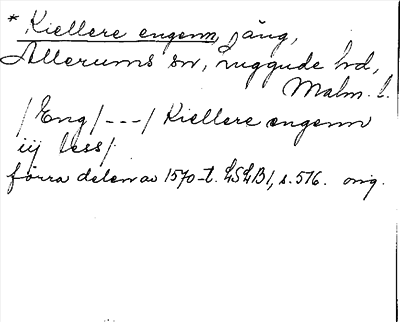 * Kiellere engenn, jäng,
Allerums sn, Luggude hd,
Malm. l.
/Eng/---/Kiellere engenn
iij less/.
förra delen av 1570-t. LSLB1, s. 516. orig.